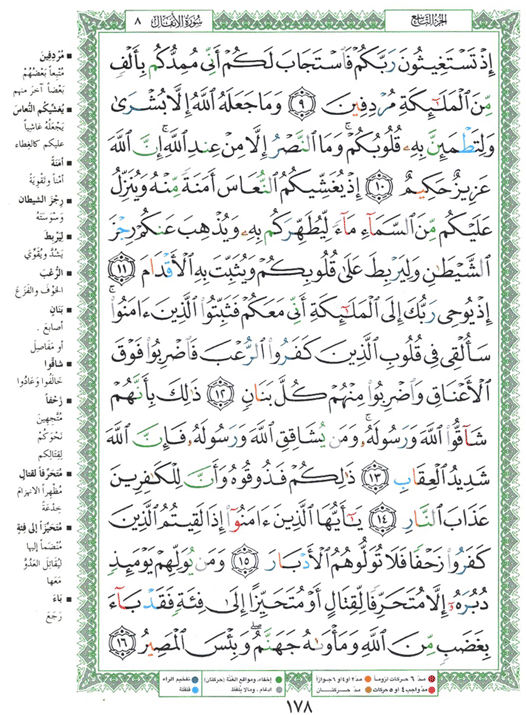 الجزء التاسع
سورة الأنفال ٨
إِذْ تَسْتَغِيثُونَ رَبَّكُمْ فَاسْتَجَابَ لَكُمْ أَنِّي مُمِدُّكُم بِأَلْفٍ
مِّنَ الْمَلَٰٓئِكَةِ مُرْدِفِينَ ٩ وَمَا جَعَلَهُ اللَّهُ إِلَّا بُشْرَىٰ
وَلِتَطْمَئِنَّ بِهِۦ قُلُوبُكُمْ ۚ وَمَا النَّصْرُ إِلَّا مِنْ عِندِ اللَّهِ ۚ إِنَّ اللَّهَ
عَزِيزٌ حَكِيمٌ ١٠ إِذْ يُغَشِّيكُمُ النُّعَاسَ أَمَنَةً مِّنْهُ وَيُنَزِّلُ
عَلَيْكُم مِّنَ السَّمَآءِ مَآءً لِّيُطَهِّرَكُم بِهِۦ وَيُذْهِبَ عَنكُمْ رِجْزَ
الشَّيْطَٰنِ وَلِيَرْبِطَ عَلَىٰ قُلُوبِكُمْ وَيُثَبِّتَ بِهِ الْأَقْدَامَ ١١
إِذْ يُوحِي رَبُّكَ إِلَى الْمَلَٰٓئِكَةِ أَنِّي مَعَكُمْ فَثَبِّتُوا الَّذِينَ ءَامَنُوا ۚ
سَأُلْقِي فِي قُلُوبِ الَّذِينَ كَفَرُوا الرُّعْبَ فَاضْرِبُوا فَوْقَ
الْأَعْنَاقِ وَاضْرِبُوا مِنْهُمْ كُلَّ بَنَانٍ ١٢ ذَٰلِكَ بِأَنَّهُمْ
شَآقُّوا اللَّهَ وَرَسُولَهُۥ ۚ وَمَن يُشَاقِقِ اللَّهَ وَرَسُولَهُۥ فَإِنَّ اللَّهَ
شَدِيدُ الْعِقَابِ ١٣ ذَٰلِكُمْ فَذُوقُوهُ وَأَنَّ لِلْكَٰفِرِينَ
عَذَابَ النَّارِ ١٤ يَٰٓأَيُّهَا الَّذِينَ ءَامَنُوٓا إِذَا لَقِيتُمُ الَّذِينَ
كَفَرُوا زَحْفًا فَلَا تُوَلُّوهُمُ الْأَدْبَارَ ١٥ وَمَن يُوَلِّهِمْ يَوْمَئِذٍ
دُبُرَهُۥٓ إِلَّا مُتَحَرِّفًا لِّقِتَالٍ أَوْ مُتَحَيِّزًا إِلَىٰ فِئَةٍ فَقَدْ بَآءَ
بِغَضَبٍ مِّنَ اللَّهِ وَمَأْوَىٰهُ جَهَنَّمُ ۖ وَبِئْسَ الْمَصِيرُ ١٦
■ مُرْدِفِينَ
مُتْبِعاً بَعْضُهُمْ
بَعْضاً آخَرَ منهم
■ يُغَشِّيكُمُ النُّعَاسَ
يَجْعَلُهُ غَاشِياً
عليكم كالغِطاء
■ أَمَنَةً
أمْناً وتَقْوِيَةً
■ رِجْزَ الشيطان
وَسْوَسَتَهُ
■ لِيَرْبِطَ
يَشُدَّ ويُقَوِّيَ
■ الرُّعْبَ
الخَوْفَ والفَزَعَ
■ بَنَانٍ
أصابعَ .
أو مَفَاصِلَ
■ شَاقُّوا
خالَفُوا وَعَادَوْا
■ زَحْفاً
مُتَّجِهِينَ
نَحْوَكُمْ
لِقِتَالِكم
■ مُتَحَرِّفاً لقتالٍ
مُظْهِراً الانهزامَ
خِدْعَةً
■ مُتَحَيِّزاً إلى فِئَةٍ
مُنْضَمّاً إليها
لِيُقَاتِلَ العَدُوَّ
مَعَهَا
■ بَاءَ
رَجَعَ
مدّ ٦ حركات لزوماً مدّ ٢ أو ٤ أو ٦ جوازاً إخفاء، ومواقع الغنّة (حركتان) تفخيم الراء
مدّ واجب ٤ أو ٥ حركات مدّ حركتان إدغام، ومالا يُلفظ قلقلة
١٧٨